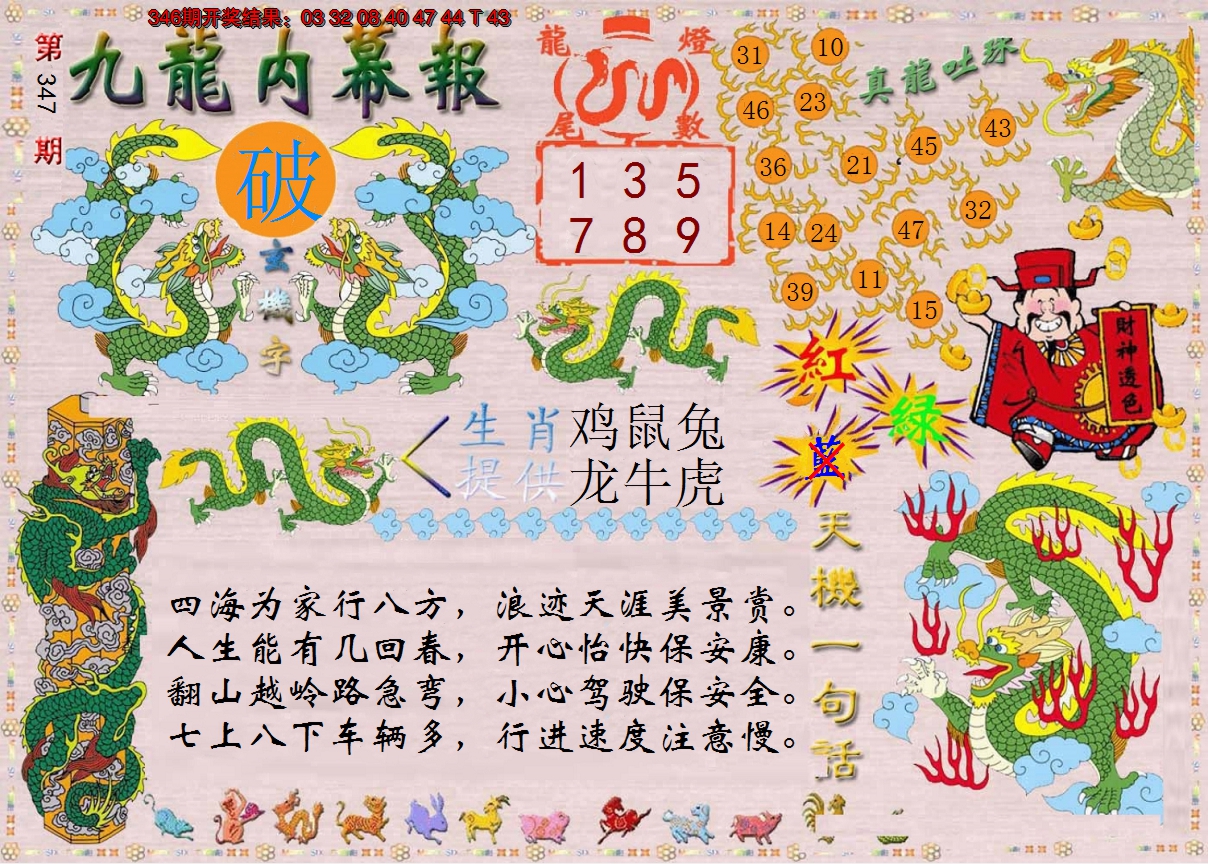 346期开奖结果：03 32 08 40 47 44 T 43
第347期
九龍内幕報
破
玄機字
龍燈
尾數
1 3 5
7 8 9
真龍吐珠
31 10
46 23
36 21 45 43
14 24 47 32
39 11 15
財神透色
紅
綠
藍
生肖 鸡鼠兔
提供 龙牛虎
天機一句話
四海为家行八方，浪迹天涯美景赏。
人生能有几回春，开心怡快保安康。
翻山越岭路急弯，小心驾驶保安全。
七上八下车辆多，行进速度注意慢。